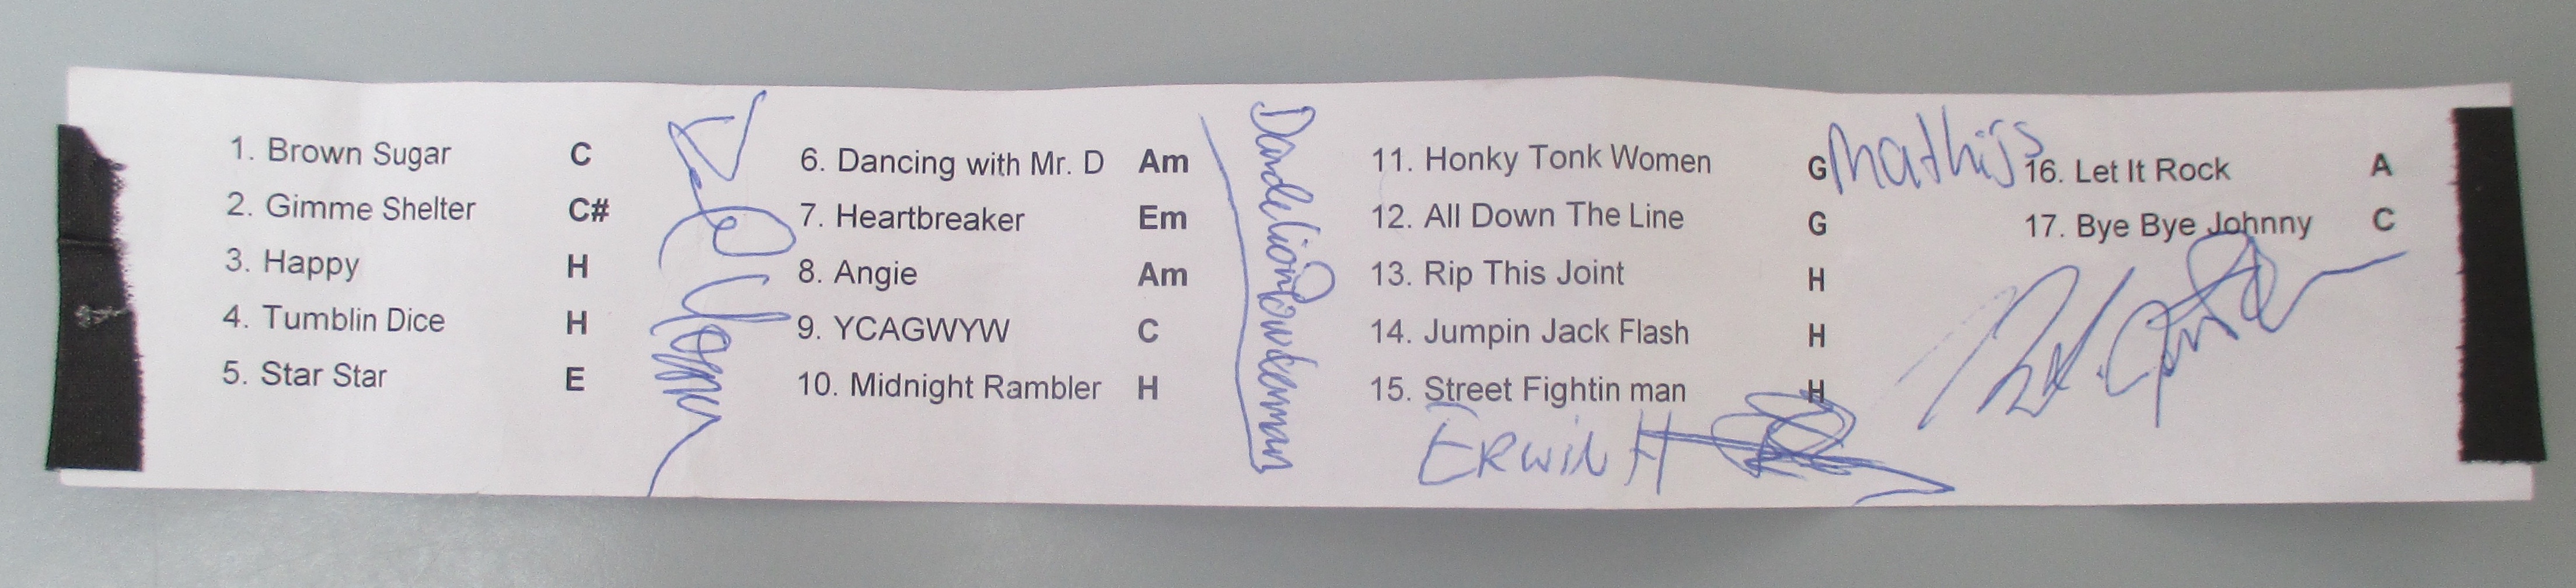 1. Brown Sugar C
2. Gimme Shelter C#
3. Happy H
4. Tumblin Dice H
5. Star Star E
6. Dancing with Mr. D Am
7. Heartbreaker Em
8. Angie Am
9. YCAGWYW C
10. Midnight Rambler H
11. Honky Tonk Women G
12. All Down The Line G
13. Rip This Joint H
14. Jumpin Jack Flash H
15. Street Fightin man H
Erwin H
Mathijs
16. Let It Rock A
17. Bye Bye Johnny C